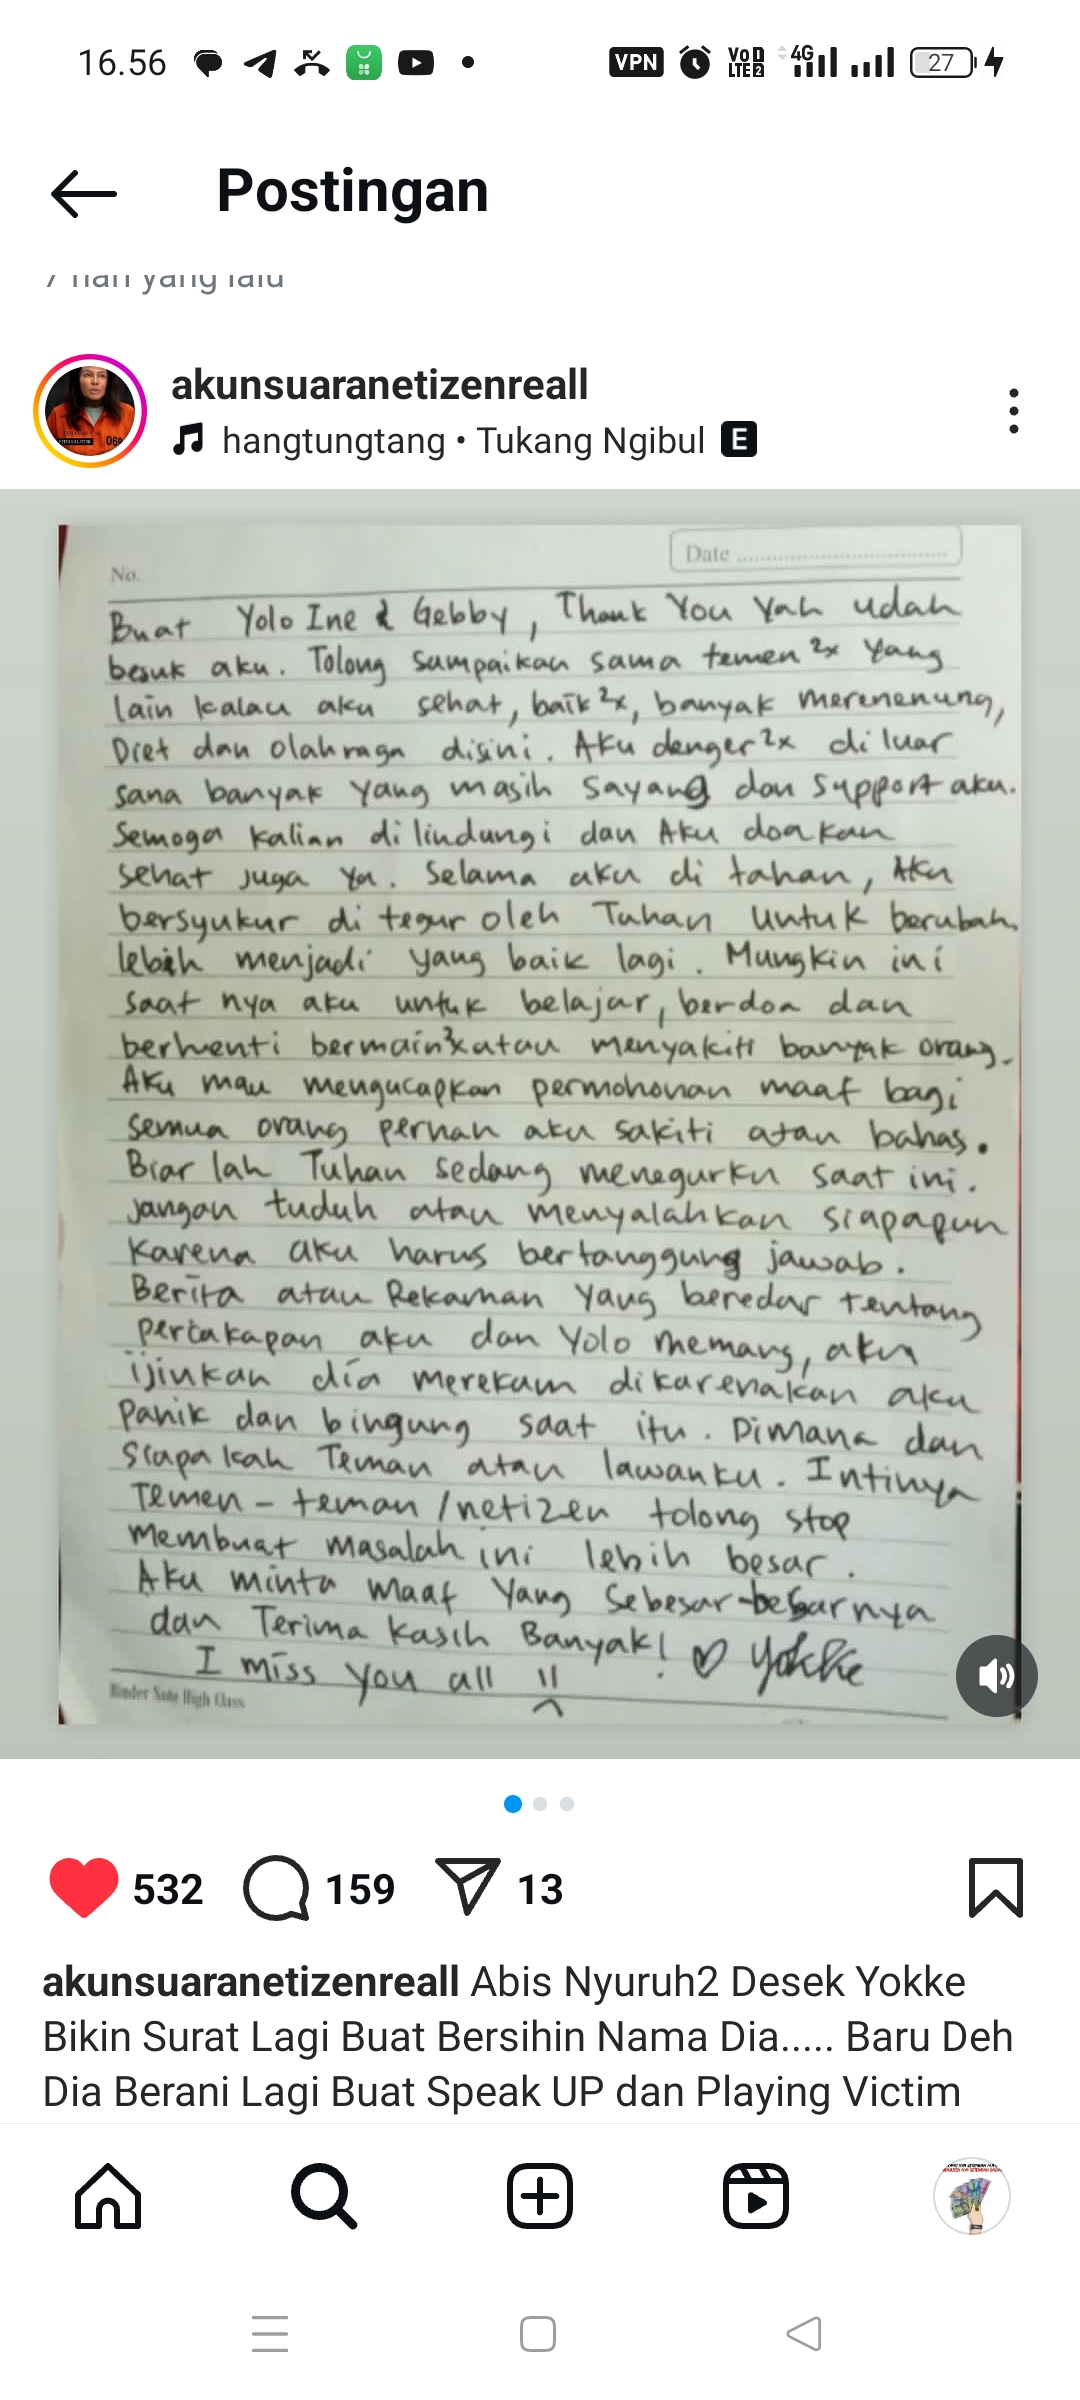 16.56
VPN
VoD LTE2
4G
27
Postingan
7 hari yang lalu
akunsuaranetizenreall
hangtungtang • Tukang Ngibul E
No.
Date
Buat Yolo Ine & Gebby, Thank You Yah udah
besuk aku. Tolong sampaikan sama temen 2x Yang
lain kalau aku sehat, baik 2x, banyak merenenung,
Diet dan olahraga disini. Aku denger 2x di luar
sana banyak Yang masih Sayang dan Support aku.
Semoga kalian di lindungi dan Aku doakan
sehat juga Ya. Selama aku di tahan, Aku
bersyukur di tegur oleh Tuhan Untuk berubah
lebih menjadi yang baik lagi. Mungkin ini
saat nya aku untuk belajar, berdoa dan
berhenti bermain2x atau menyakiti banyak orang.
Aku mau mengucapkan permohonan maaf bagi
semua orang pernah aku sakiti atau bahas.
Biar lah Tuhan sedang menegurku saat ini.
jangan tuduh atau menyalahkan siapapun
karena aku harus bertanggung jawab.
Berita atau Rekaman Yang beredar tentang
percakapan aku dan Yolo memang, aku
ijinkan dia merekam dikarenakan aku
Panik dan bingung saat itu. Dimana dan
Siapa kah Teman atau lawanku. Intinya
Temen - teman / netizen tolong stop
membuat masalah ini lebih besar.
Aku minta maaf Yang Sebesar-besarnya
dan Terima kasih Banyak! ♡ Yokke
I miss You all !!
Binder Note High Class
532
159
13
akunsuaranetizenreall Abis Nyuruh2 Desek Yokke
Bikin Surat Lagi Buat Bersihin Nama Dia..... Baru Deh
Dia Berani Lagi Buat Speak UP dan Playing Victim